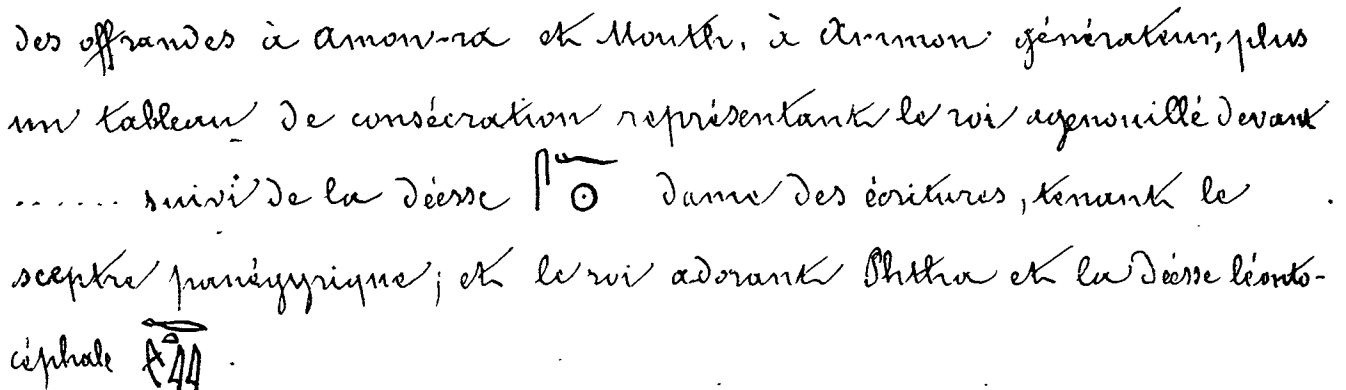 des offrandes à Amon-ra et Mouth, à Ammon générateur, plus
un tableau de consécration représentant le roi agenouillé devant
...... suivi de la déesse dame des écritures, tenant le
sceptre panégyrique; et le roi adorant Phtha et la déesse léonto-
céphale .